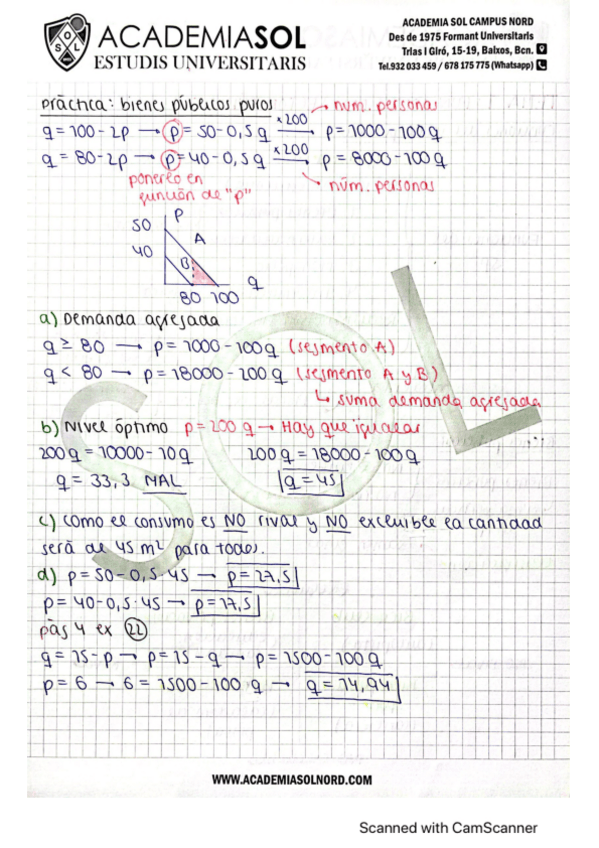 ACADEMIASOL
ESTUDIS UNIVERSITARIS
ACADEMIA SOL CAMPUS NORD
Des de 1975 Formant Universitaris
Trias I Giró, 15-19, Baixos, Bcn.
Tel.932 033 459 / 678 175 775 (Whatsapp)
práctica: bienes públicos puros → num. personas
q = 100 - 2p → p = 50 - 0,5q ×200→ p = 1000 - 100q
q = 80 - 2p → p = 40 - 0,5q ×200→ p = 8000 - 100q
ponerlo en función de "p" → núm. personas
50 P
40 A
B
80 100 q
a) Demanda agregada
q ≥ 80 → p = 1000 - 100q (segmento A)
q < 80 → p = 18000 - 200q (segmento A y B)
↳ suma demanda agregada
b) Nivel óptimo p = 200q → Hay que igualar
200q = 10000 - 10q 200q = 18000 - 100q
q = 33,3 MAL q = 45
c) como el consumo es NO rival y NO excluible la cantidad
será de 45 m² para todos.
d) p = 50 - 0,5·45 → p = 27,5
p = 40 - 0,5·45 → p = 17,5
pàs 4 ex 22
q = 15 - p → p = 15 - q → p = 1500 - 100q
p = 6 → 6 = 1500 - 100q → q = 14,94
SOL
WWW.ACADEMIASOLNORD.COM
Scanned with CamScanner